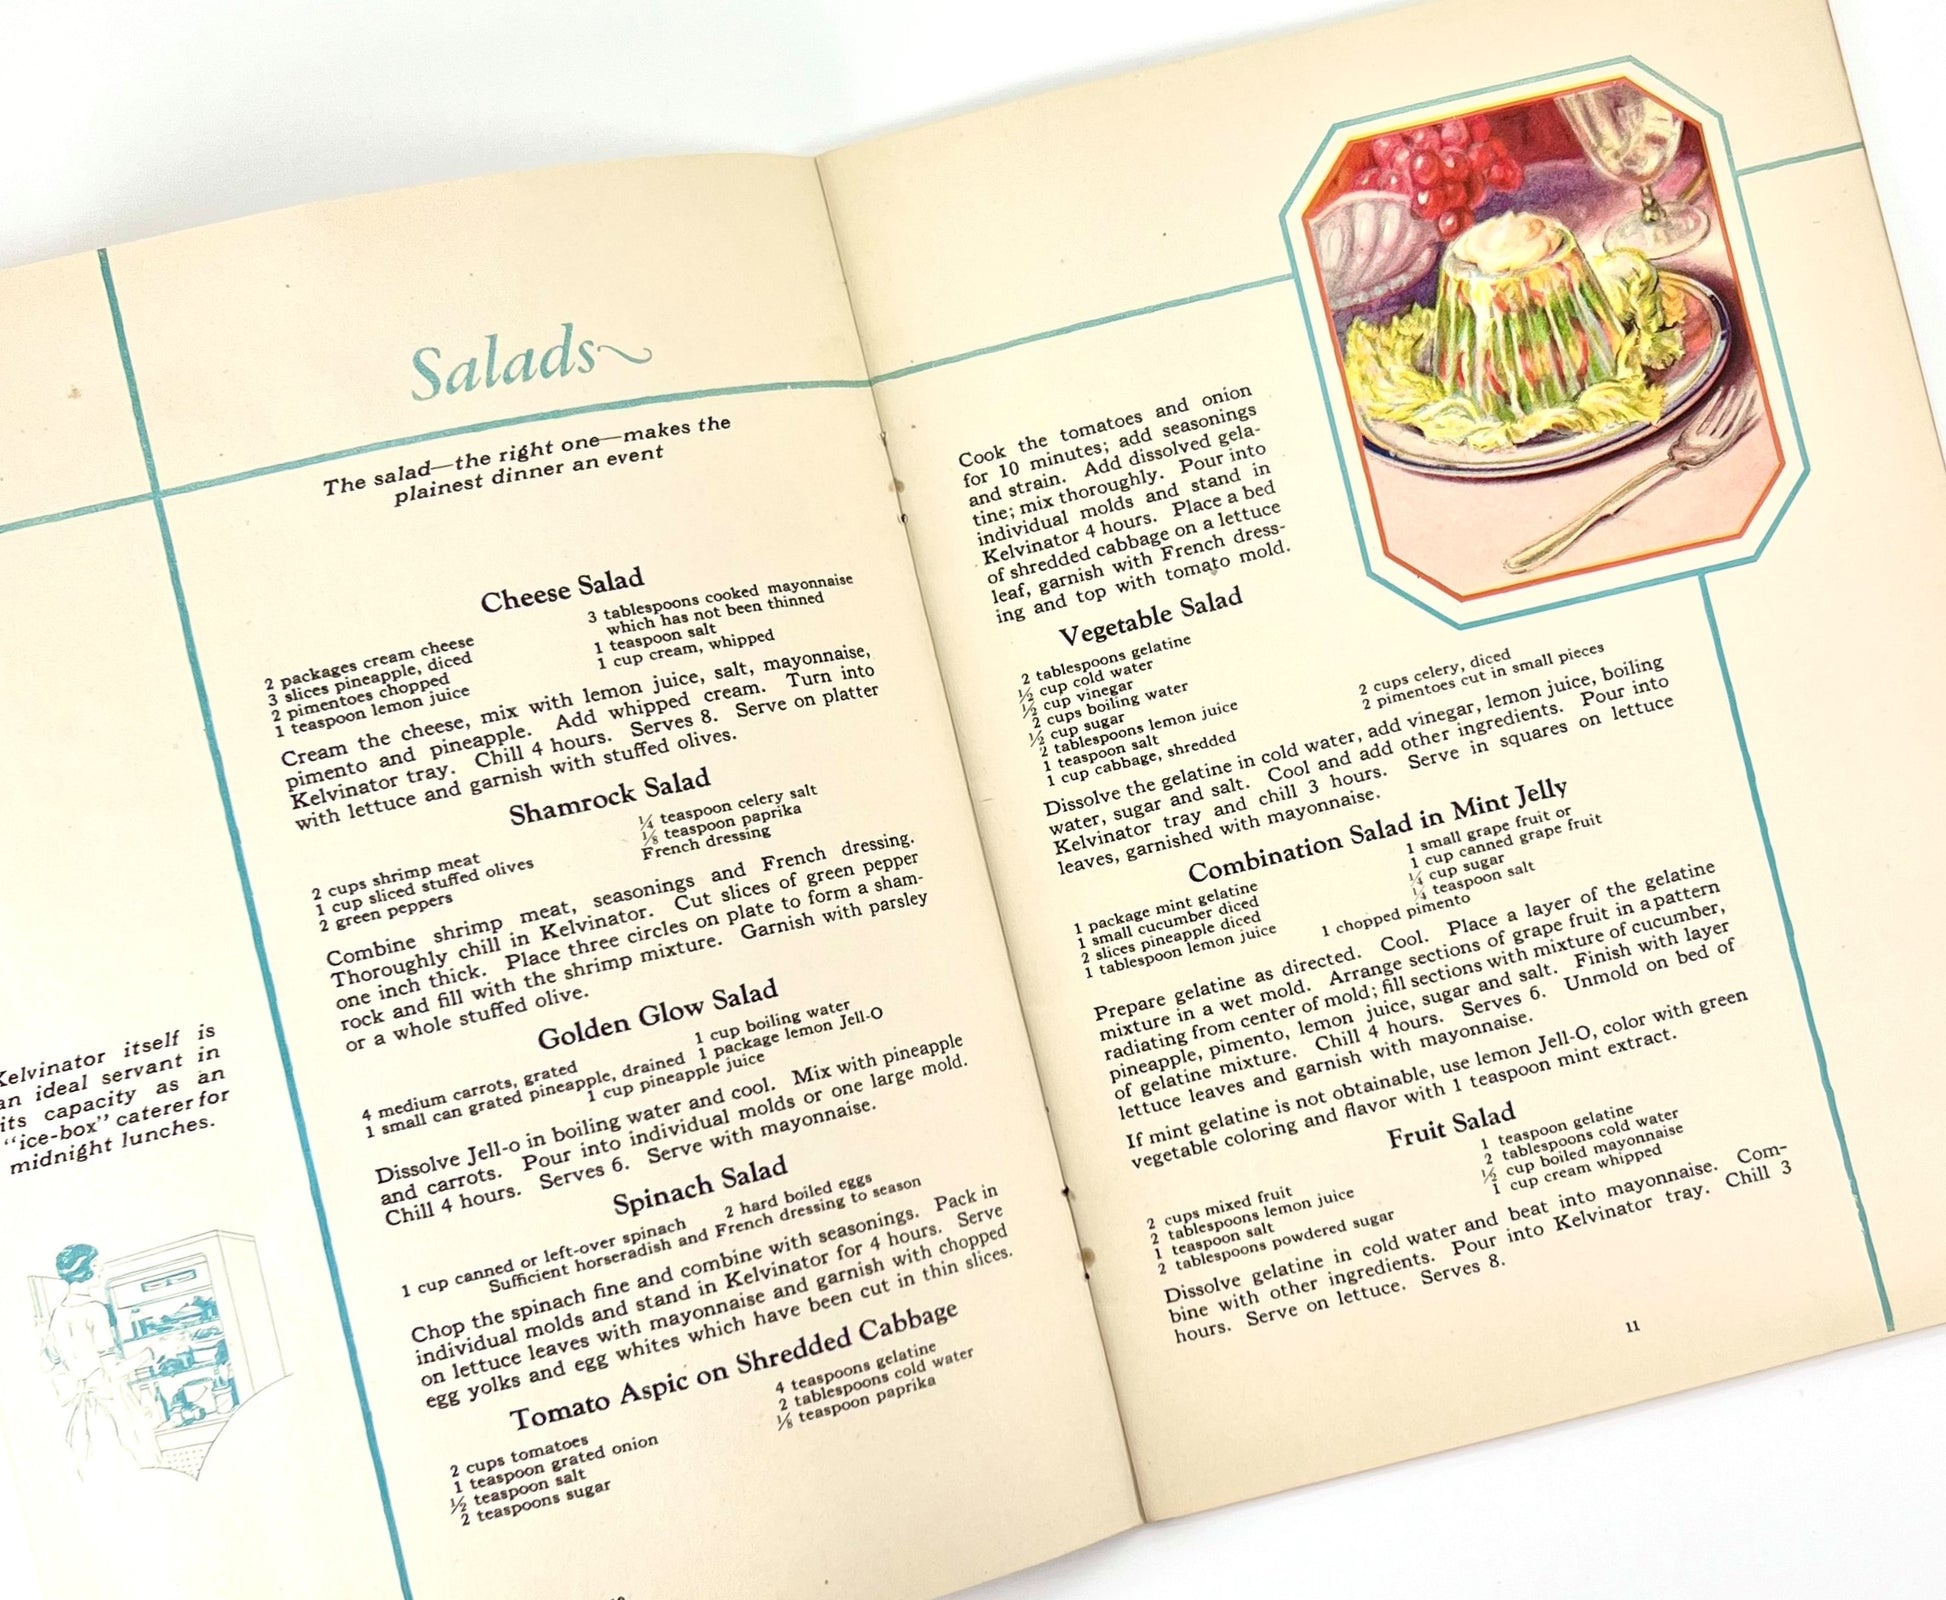 Salads
The salad—the right one—makes the
plainest dinner an event
Cheese Salad
2 packages cream cheese
3 slices pineapple, diced
2 pimentoes chopped
1 teaspoon lemon juice
3 tablespoons cooked mayonnaise
which has not been thinned
1 teaspoon salt
1 cup cream, whipped
Cream the cheese, mix with lemon juice, salt, mayonnaise,
pimento and pineapple. Add whipped cream. Turn into
Kelvinator tray. Chill 4 hours. Serves 8. Serve on platter
with lettuce and garnish with stuffed olives.
Shamrock Salad
2 cups shrimp meat
1 cup sliced stuffed olives
2 green peppers
¼ teaspoon celery salt
⅛ teaspoon paprika
French dressing
Combine shrimp meat, seasonings and French dressing.
Thoroughly chill in Kelvinator. Cut slices of green pepper
one inch thick. Place three circles on plate to form a sham-
rock and fill with the shrimp mixture. Garnish with parsley
or a whole stuffed olive.
Golden Glow Salad
4 medium carrots, grated
1 small can grated pineapple, drained
1 cup boiling water
1 package lemon Jell-O
1 cup pineapple juice
Dissolve Jell-o in boiling water and cool. Mix with pineapple
and carrots. Pour into individual molds or one large mold.
Chill 4 hours. Serves 6. Serve with mayonnaise.
Spinach Salad
1 cup canned or left-over spinach
2 hard boiled eggs
Sufficient horseradish and French dressing to season
Chop the spinach fine and combine with seasonings. Pack in
individual molds and stand in Kelvinator for 4 hours. Serve
on lettuce leaves with mayonnaise and garnish with chopped
egg yolks and egg whites which have been cut in thin slices.
Tomato Aspic on Shredded Cabbage
2 cups tomatoes
1 teaspoon grated onion
½ teaspoon salt
2 teaspoons sugar
4 teaspoons gelatine
2 tablespoons cold water
⅛ teaspoon paprika
Kelvinator itself is
an ideal servant in
its capacity as an
"ice-box" caterer for
midnight lunches.
Cook the tomatoes and onion
for 10 minutes; add seasonings
and strain. Add dissolved gela-
tine; mix thoroughly. Pour into
individual molds and stand in
Kelvinator 4 hours. Place a bed
of shredded cabbage on a lettuce
leaf, garnish with French dress-
ing and top with tomato mold.
Vegetable Salad
2 tablespoons gelatine
½ cup cold water
½ cup vinegar
2 cups boiling water
½ cup sugar
2 tablespoons lemon juice
1 teaspoon salt
1 cup cabbage, shredded
2 cups celery, diced
2 pimentoes cut in small pieces
Dissolve the gelatine in cold water, add vinegar, lemon juice, boiling
water, sugar and salt. Cool and add other ingredients. Pour into
Kelvinator tray and chill 3 hours. Serve in squares on lettuce
leaves, garnished with mayonnaise.
Combination Salad in Mint Jelly
1 package mint gelatine
1 small cucumber diced
2 slices pineapple diced
1 tablespoon lemon juice
1 small grape fruit or
1 cup canned grape fruit
¼ cup sugar
¼ teaspoon salt
1 chopped pimento
Prepare gelatine as directed. Cool. Place a layer of the gelatine
mixture in a wet mold. Arrange sections of grape fruit in a pattern
radiating from center of mold; fill sections with mixture of cucumber,
pineapple, pimento, lemon juice, sugar and salt. Finish with layer
of gelatine mixture. Chill 4 hours. Serves 6. Unmold on bed of
lettuce leaves and garnish with mayonnaise.
If mint gelatine is not obtainable, use lemon Jell-O, color with green
vegetable coloring and flavor with 1 teaspoon mint extract.
Fruit Salad
2 cups mixed fruit
2 tablespoons lemon juice
1 teaspoon salt
2 tablespoons powdered sugar
1 teaspoon gelatine
2 tablespoons cold water
½ cup boiled mayonnaise
1 cup cream whipped
Dissolve gelatine in cold water and beat into mayonnaise. Com-
bine with other ingredients. Pour into Kelvinator tray. Chill 3
hours. Serve on lettuce. Serves 8.
11